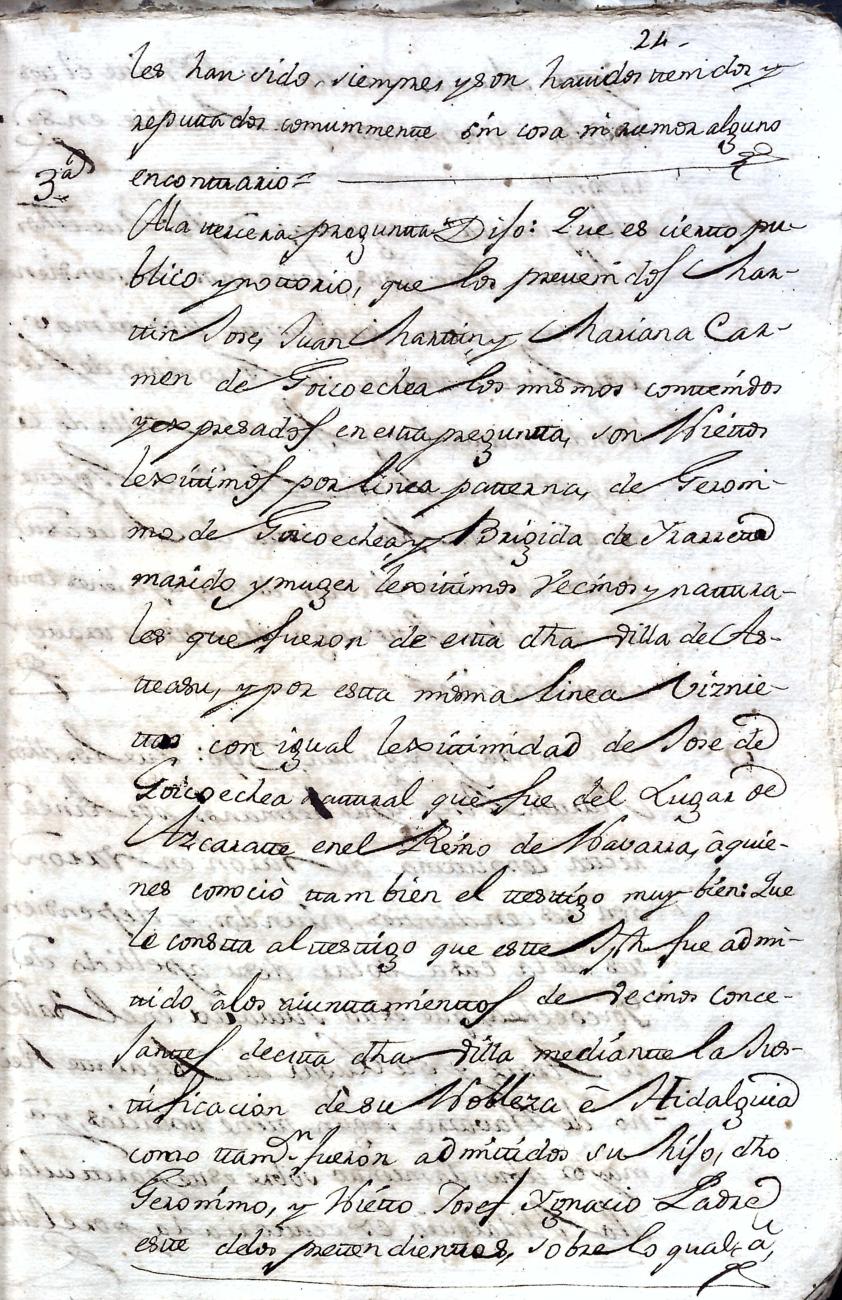 24.
les han sido, siempre, y son havidos ttenidos y
reputtados comunmentte sin cosa ni rumor alguno
encontrario=
3ª
A la tercera preguntta Dijo: Que es ciertto pu-
blico y nottorio, que los prevenidos Mar-
ttin Jose, Juan Marttin y Mariana Car-
men de Goicoechea los mismos conttenidos
y expresados en estta preguntta, son Niettos
lexittimos por linea patterna, de Geroni-
mo de Goicoechea, y Brigida de Yrarretta
marido y muger lexittimos Vecinos y nattura-
les que fueron de estta dha villa de As-
tteasu, y por estta misma linea Viznie-
ttos con igual lexittimidad de Jose de
Goicoechea nattural que fue del Lugar de
Azcaratte enel Reino de Navarra, âquie-
nes conociò ttambien el testtigo muy bien: Que
le constta al testtigo que estte Jph fue admi-
ttido âlos aiunttamienttos de Vecinos conce-
jantes de estta dha villa mediantte la Jus-
tificacion de su Nobleza ê Hidalguia
como ttamn. fueron admittidos su hijo, dho
Geronimo, y Nietto Josef Ygnacio Padre
estte delos prettendienttes, sobre lo qual, â,